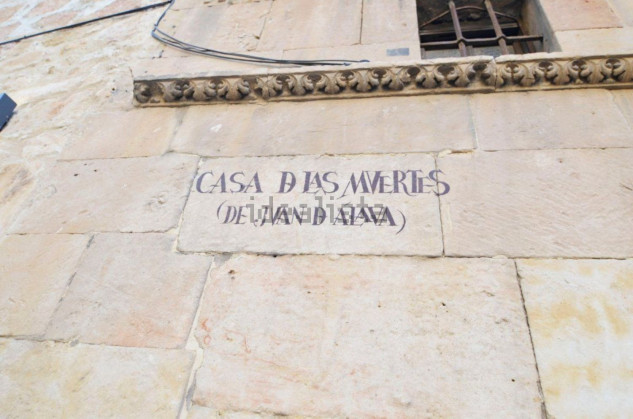 CASA D LAS MVERTES
(DE JVAN D ALAVA)
idealista